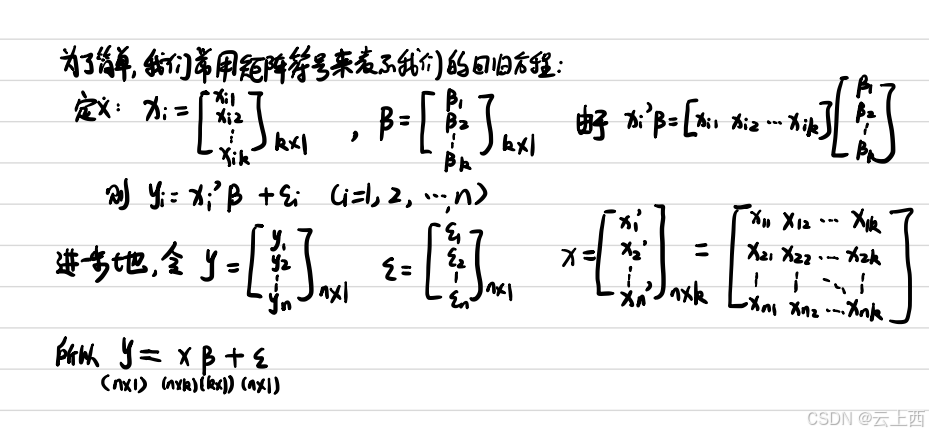 为了简单,我们常用矩阵符号来表示我们的回归方程:
定义: x_i = [x_{i1} x_{i2} ⋮ x_{ik}]_{k×1} , β = [β_1 β_2 ⋮ β_k]_{k×1} 由于 x_i'β = [x_{i1} x_{i2} ⋯ x_{ik}] [β_1 β_2 ⋮ β_k]
则 y_i = x_i'β + ε_i (i=1, 2, ⋯, n)
进一步地,令 y = [y_1 y_2 ⋮ y_n]_{n×1} ε = [ε_1 ε_2 ⋮ ε_n]_{n×1} x = [x_1' x_2' ⋮ x_n']_{n×k} = [x_{11} x_{12} ⋯ x_{1k} x_{21} x_{22} ⋯ x_{2k} ⋮ ⋮ ⋱ ⋮ x_{n1} x_{n2} ⋯ x_{nk}]
所以 y = x β + ε
(n×1) (n×k)(k×1) (n×1)
CSDN @云上西